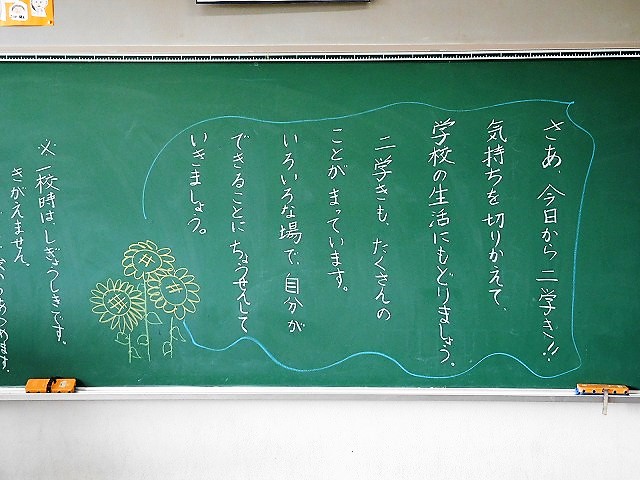 さあ、今日から二学き!!
気持ちを切りかえて、
学校の生活にもどりましょう。
二学きも、たくさんの
ことがまっています。
いろいろな場で、自分が
できることにちょうせんして
いきましょう。
※一校時はしぎょうしきです。
きがえません。